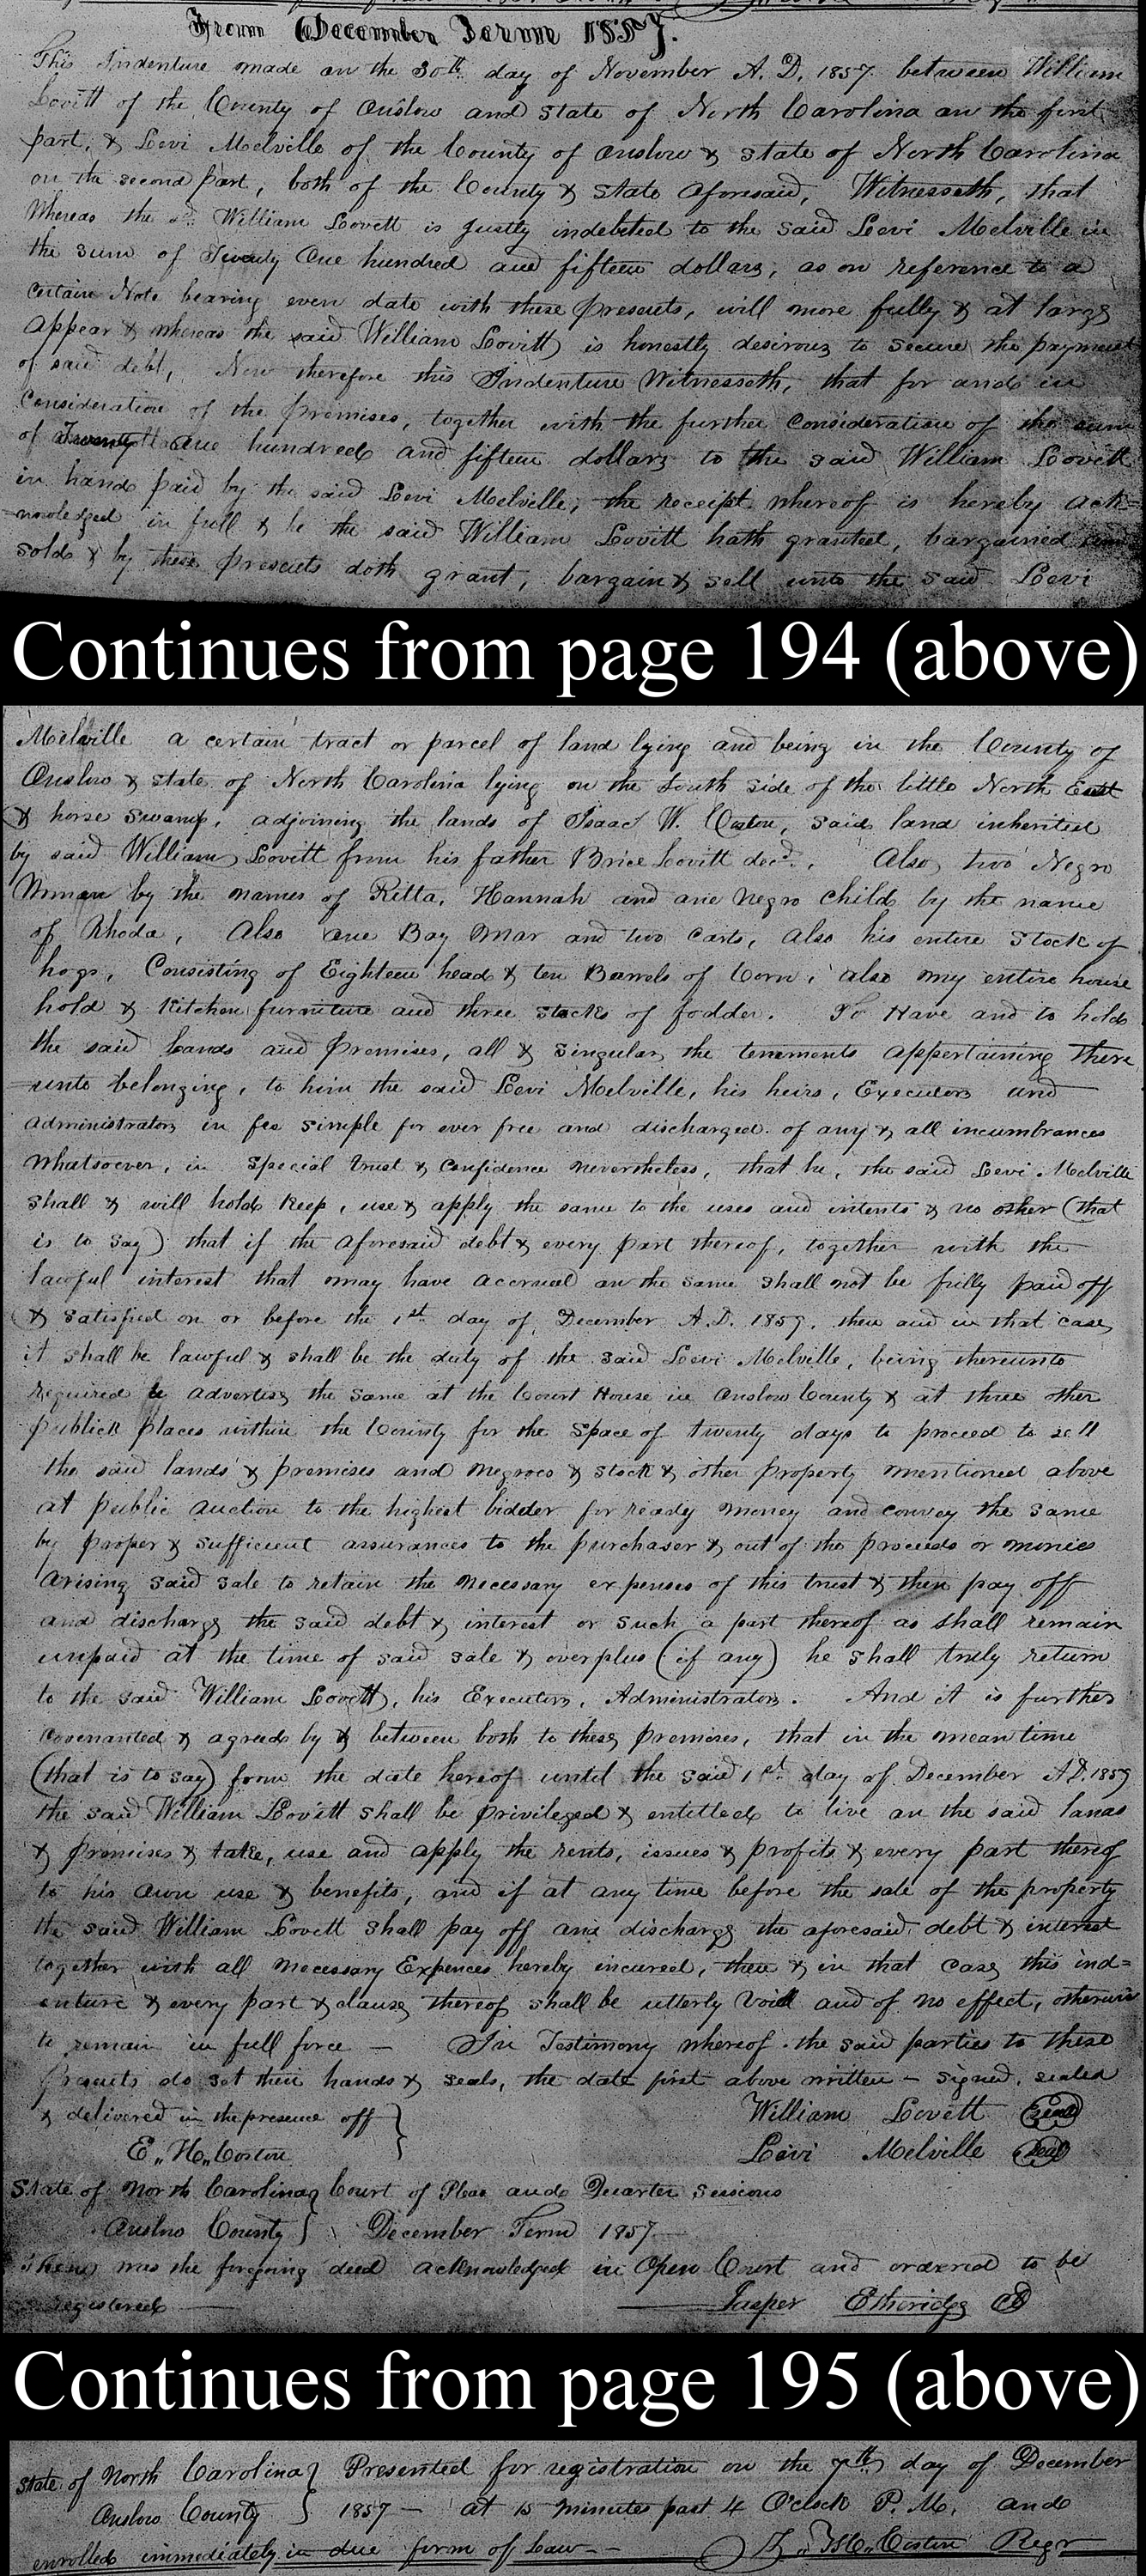 From December Term 1857.
This Indenture made on the 30th day of November A. D. 1857 between William
Lovitt of the County of Onslow and State of North Carolina on the first
part, & Levi Melville of the County of Onslow & State of North Carolina
on the second part, both of the County & State aforesaid, Witnesseth, that
Whereas the sd. William Lovett is justly indebted to the said Levi Melville in
the sum of Twenty One hundred and fifteen dollars, as on reference to a
certain Note bearing even date with these presents, will more fully & at large
appear & whereas the said William Lovitt is honestly desirous to secure the payment
of said debt, Now therefore this Indenture Witnesseth, that for and in
Consideration of the premises, together with the further consideration of the sum
of Twenty One hundred and fifteen dollars to the said William Lovitt
in hand paid by the said Levi Melville, the receipt whereof is hereby ack=
nowledged in full & he the said William Lovitt hath granted, bargained and
sold & by these presents doth grant, bargain & sell unto the said Levi
Continues from page 194 (above)
Melville a certain tract or parcel of land lying and being in the County of
Onslow & state of North Carolina lying on the South side of the little North East
& horse swamp, adjoining the lands of Isaac W. said land inherited
by said William Lovitt from his father Brice Lovitt decd. Also two Negro
Woman by the names of Ritta, Hannah and one negro child by the name
of Rhoda, Also one Bay Mar and two carts, also his entire stock of
hogs, Consisting of Eighteen head & ten Barrels of Corn, also my entire house
hold & Kitchen furniture and three stacks of fodder. To Have and to hold
the said Lands and premises, all & singular the tenements appertaining there
unto belonging, to him the said Levi Melville, his heirs, Executors and
administrators in fee simple for ever free and discharged of any & all incumbrances
whatsoever, in special trust & confidence nevertheless, that he, the said Levi Melville
shall & will hold Keep, use & apply the same to the uses and intents & no other (that
is to say) that if the aforesaid debt & every part thereof, together with the
lawful interest that may have accrued on the same shall not be fully paid off
& satisfied on or before the 1st day of December A.D. 1859, then and in that case,
it shall be lawful & shall be the duty of the said Levi Melville, being thereunto
required to advertise the same at the Court House in Onslow County & at three other
publick places within the County for the space of twenty days to proceed to sell
the said lands & premises and negroes & stock & other property mentioned above
at public auction to the highest bidder for ready money and convey the same
by proper & sufficient assurances to the purchaser & out of the proceeds or monies
arising said sale to retain the necessary expenses of this trust & then pay off
and discharge the said debt & interest or such a part thereof as shall remain
unpaid at the time of said sale & overplus (if any) he shall truly return
to the said William Lovett, his Executors, Administrators. And it is further
covenanted & agreed by & between both to these premises, that in the mean time
(that is to say) from the date hereof until the said 1st day of December A.D. 1859
the said William Lovitt shall be privileged & entitled to live on the said lands
& premises & take, use and apply the rents, issues & profits & every part thereof
to his own use & benefits, and if at any time before the sale of the property
the said William Lovett shall pay off and discharge the aforesaid debt & interest
together with all necessary Expences hereby incured, then & in that case this ind=
enture & every part & clause thereof shall be utterly void and of no effect, otherwise
to remain in full force — In Testimony whereof the said parties to these
presents do set their hands & seals, the date first above written — signed, sealed
& delivered in the presence off } William Lovett Seal
E. H. Coston } Levi Melville Seal
State of North Carolina } Court of Pleas and Quarter Sessions
Onslow County } December Term 1857
Then was the foregoing deed acknowledged in Open Court and ordered to be
registered Jasper Etheridge
Continues from page 195 (above)
State of North Carolina } Presented for registration on the 7th day of December
Onslow County } 1857 — at 15 minutes past 4 O'clock P. M. and
enrolled immediately in due form of Law — H. Coston Regr